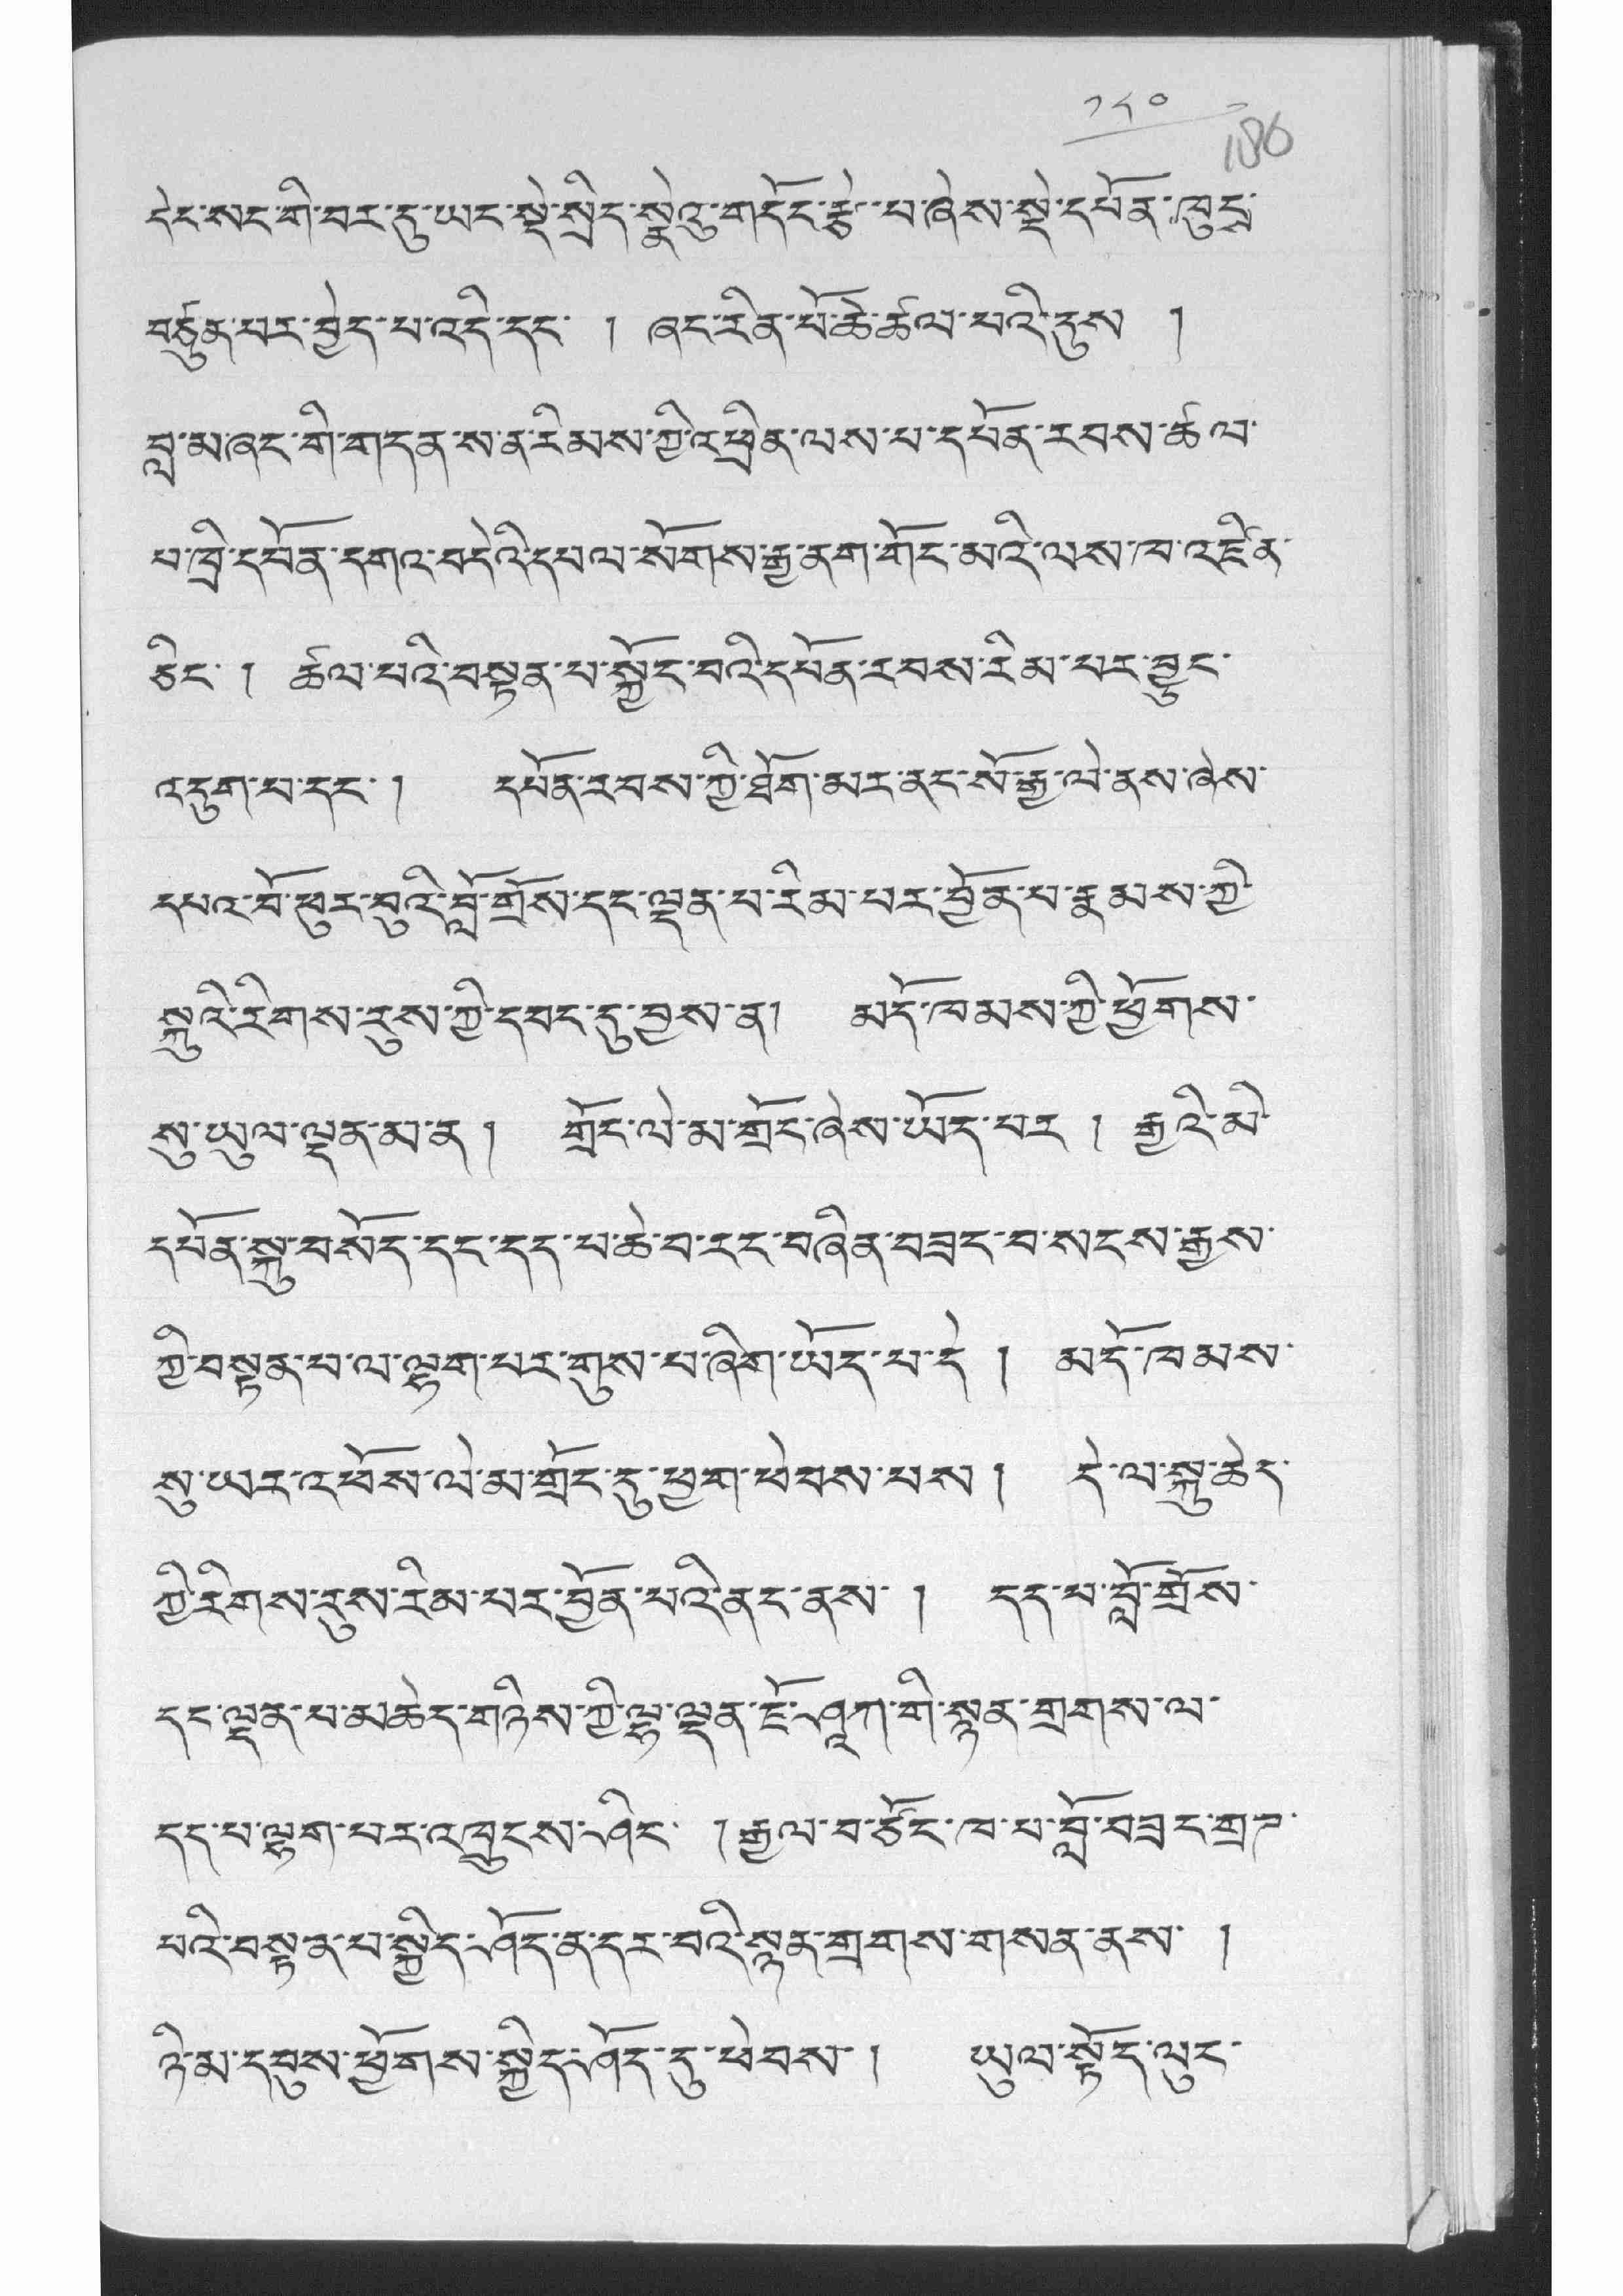 ༢༨༠
186
དེང་སང་གི་བར་དུ་ཡང་སྡེ་སྲིད་སྣེའུ་གདོང་རྩེ་པ་ཞེས་སྡེ་དཔོན་ཁུདྲ་
བཙུན་པར་བྱེད་པ་འདི་དང་ ། ཞང་རིན་པོ་ཆེ་ཚལ་པའི་དུས །
བླ་མ་ཞང་གི་གདན་ས་ན་རིམས་ཀྱི་འཕྲིན་ལས་པ་དཔོན་རབས་ཚལ་
པ་ཁྲི་དཔོན་དགའ་བདེའི་དཔལ་སོགས་རྒྱ་ནག་གོང་མའི་ལས་ཁ་འཛིན་
ཅིང་ ། ཚལ་པའི་བསྟན་པ་སྐྱོང་བའི་དཔོན་རབས་རིམ་པར་བྱུང་
འདུག་པ་དང་ ། དཔོན་རབས་ཀྱི་ཐོག་མར་ནང་སོ་རྒྱ་ལེ་ནས་ཞེས་
དཔའ་བོ་ཕུར་བུའི་བློ་གྲོས་དང་ལྡན་པ་རིམ་པར་བྱོན་པ་རྣམས་ཀྱི་
སྐུའི་རིགས་རུས་ཀྱི་དབང་དུ་བྱས་ན། མདོ་ཁམས་ཀྱི་ཕྱོགས་
སུ་ཡུལ་ལྡན་མ་ན ། གྲོང་ལེ་མ་གྲོང་ཞེས་ཡོད་པར ། རྒྱའི་མི་
དཔོན་སྐུ་བསོད་དང་དད་པ་ཆེ་བ་རང་བཞིན་བཟང་བ་སངས་རྒྱས་
ཀྱི་བསྟན་པ་ལ་ལྷག་པར་གུས་པ་ཞིག་ཡོད་པ་དེ ། མདོ་ཁམས་
སུ་ཡར་འཕོས་ལེ་མ་གྲོང་དུ་ཕྱག་ཕེབས་པས ། དེ་ལ་སྐུ་ཆེད་
ཀྱི་རིགས་རུས་རིམ་པར་བྱོན་པའི་ནང་ནས་ ། དད་པ་བློ་གྲོས་
དང་ལྡན་པ་མཆེད་གཉིས་ཀྱི་ལྷ་ལྡན་ཇོ་ཤཱཀ་གི་སྙན་གྲགས་ལ་
དད་པ་ལྷག་པར་འཁྲུངས་ཤིང་ ། རྒྱལ་བ་ཙོང་ཁ་པ་བློ་བཟང་གྲཊ་
པའི་བསྟན་པ་སྐྱིད་ཤོད་ན་དར་བའི་སྙན་གྲགས་གསན་ནས་ །
ཉི་མ་དབུས་ཕྱོགས་སྐྱིད་ཤོད་དུ་ཕེབས་ ། ཡུལ་སྟོད་ལུང་